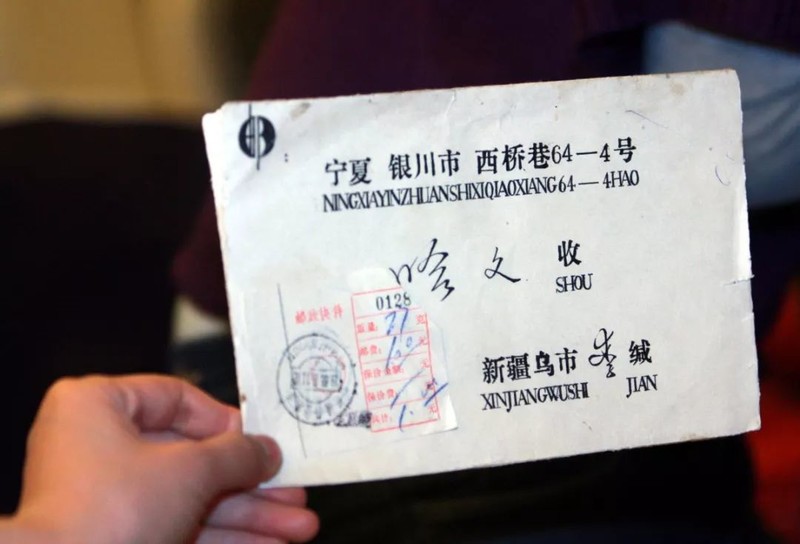 宁夏 银川市 西桥巷64—4号
NINGXIAYINZHUANSHIXIQIAOXIANG64—4HAO
哈文 收
SHOU
邮政快件
0128
重量: 21 克
邮费: 1.60 元
保价金额: 元
保价费: 元
共计: 元
新疆乌市 李 缄
XINJIANGWUSHI JIAN